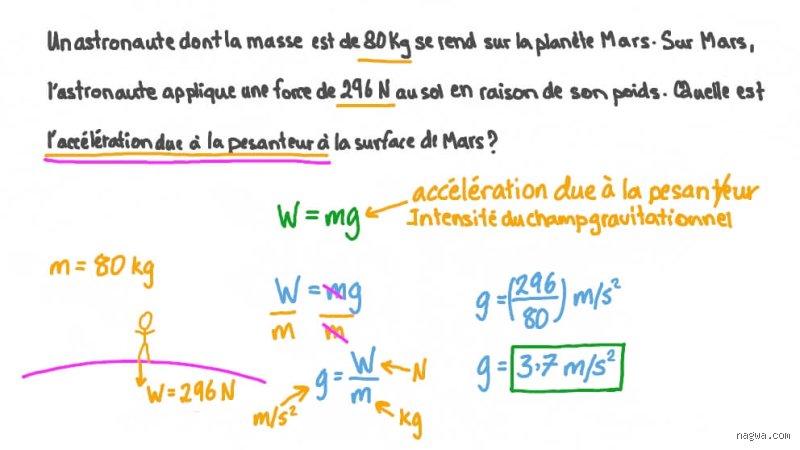 Un astronaute dont la masse est de 80 kg se rend sur la planète Mars. Sur Mars,
l'astronaute applique une force de 296 N au sol en raison de son poids. Quelle est
l'accélération due à la pesanteur à la surface de Mars?
W = mg
accélération due à la pesanteur
Intensité du champ gravitationnel
m = 80 kg
W = 296 N
W/m = mg/m
g = W/m
N
kg
m/s²
g = (296/80) m/s²
g = 3.7 m/s²
nagwa.com